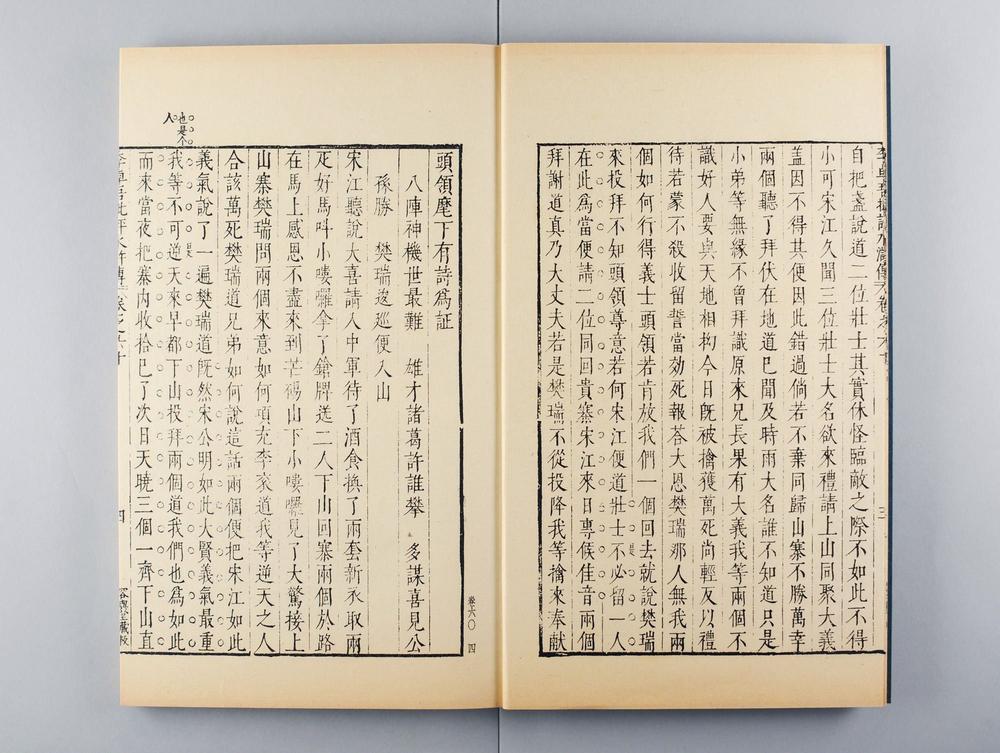 自把盞說道二位壯士其實休怪臨敵之際不如此不得
小可宋江久聞三位壯士大名欲來禮請上山同聚大義
盖因不得其便因此錯過倘若不棄同歸山寨不勝萬幸
兩個聽了拜伏在地道已聞及時雨大名誰不知道只是
小弟等無緣不曾拜識原來兄長果有大義我等兩個不
識好人要與天地相拘今日既被擒獲萬死尚輕及以禮
待若蒙不殺收留誓當効死報荅大恩樊瑞那人無我兩
個如何行得義士頭領若肯放我們一個回去就說樊瑞
來投拜不知頭領尊意若何宋江便道壯士不必留一人
是
在此為當便請二位同回貴寨宋江來日專候佳音兩個
拜謝道真乃大丈夫若是樊瑞不從投降我等擒來奉献
三
頭領麾下有詩爲証
八陣神機世最難 雄才諸葛許誰攀 多謀喜見公
孫勝 樊瑞逡巡便入山
宋江聽說大喜請入中軍待了酒食換了兩套新衣取兩
疋好馬呌小嘍囉拿了鎗牌送二人下山回寨兩個於路
在馬上感恩不盡來到芒碭山下小嘍囉見了大驚接上
山寨樊瑞問兩個來意如何項充李袞道我等逆天之人
合該萬死樊瑞道兄弟如何說這話兩個便把宋江如此
義氣說了一遍樊瑞道既然宋公明如此大賢義氣最重
是
也是个
人
我等不可逆天來早都下山投拜兩個道我們也為如此
而來當夜把寨內收拾巳了次日天曉三個一齊下山直
四
卷六〇
四